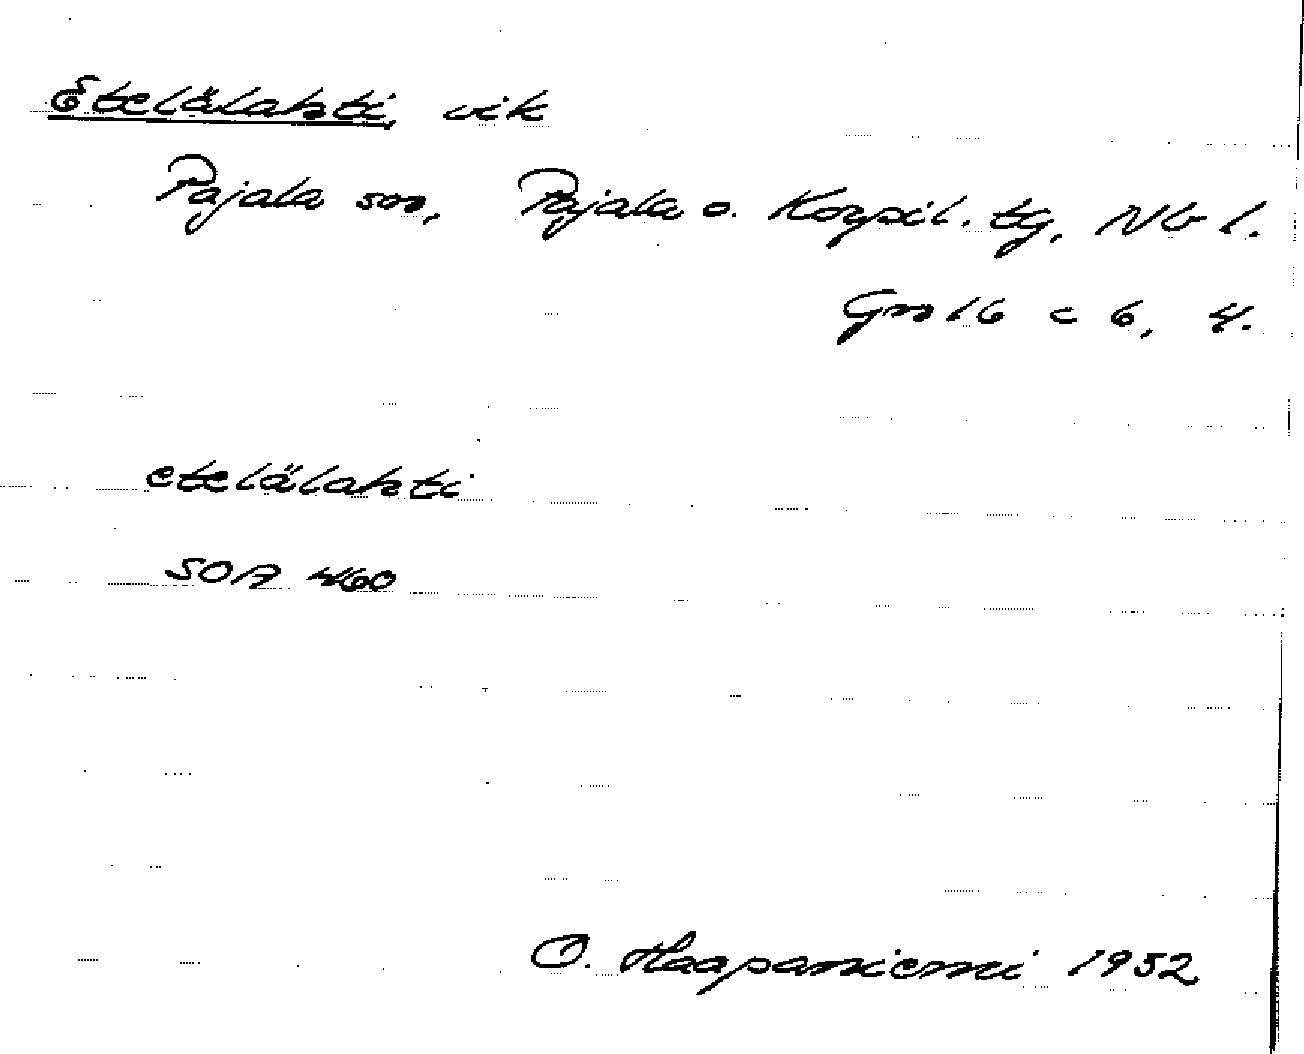 Etelälahti, vik
Pajala sn, Pajala o. Korpil. tg, Nb l.
Gm 16 c 6, 4.
etelälahti
SOA 460
O. Haapaniemi 1952